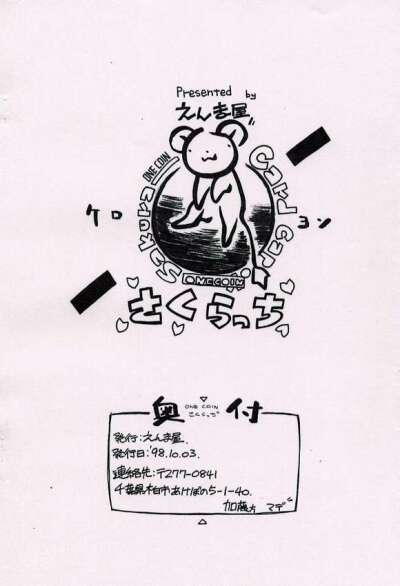 Presented by
えんま屋"
ONE COIN
Card Captor Sakura
ケロ
ヨン
ONE COIN
さくらっち
奥付
ONE COIN
さくらっち
発行:えんま屋.
発行日:'98.10.03.
連絡先:〒277-0841
千葉県柏市あけぼの5-1-40.
加藤方 マデ"